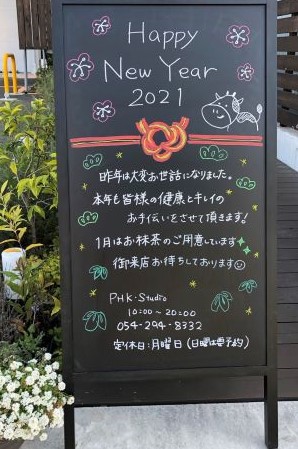 Happy
New Year
2021
昨年は大変お世話になりました。
本年も皆様の健康とキレイの
お手伝いをさせて頂きます!
1月はお抹茶のご用意しています
御来店お待ちしております
PHK・Studio
10:00〜20:00
054-294-8332
定休日:月曜日(日曜は要予約)